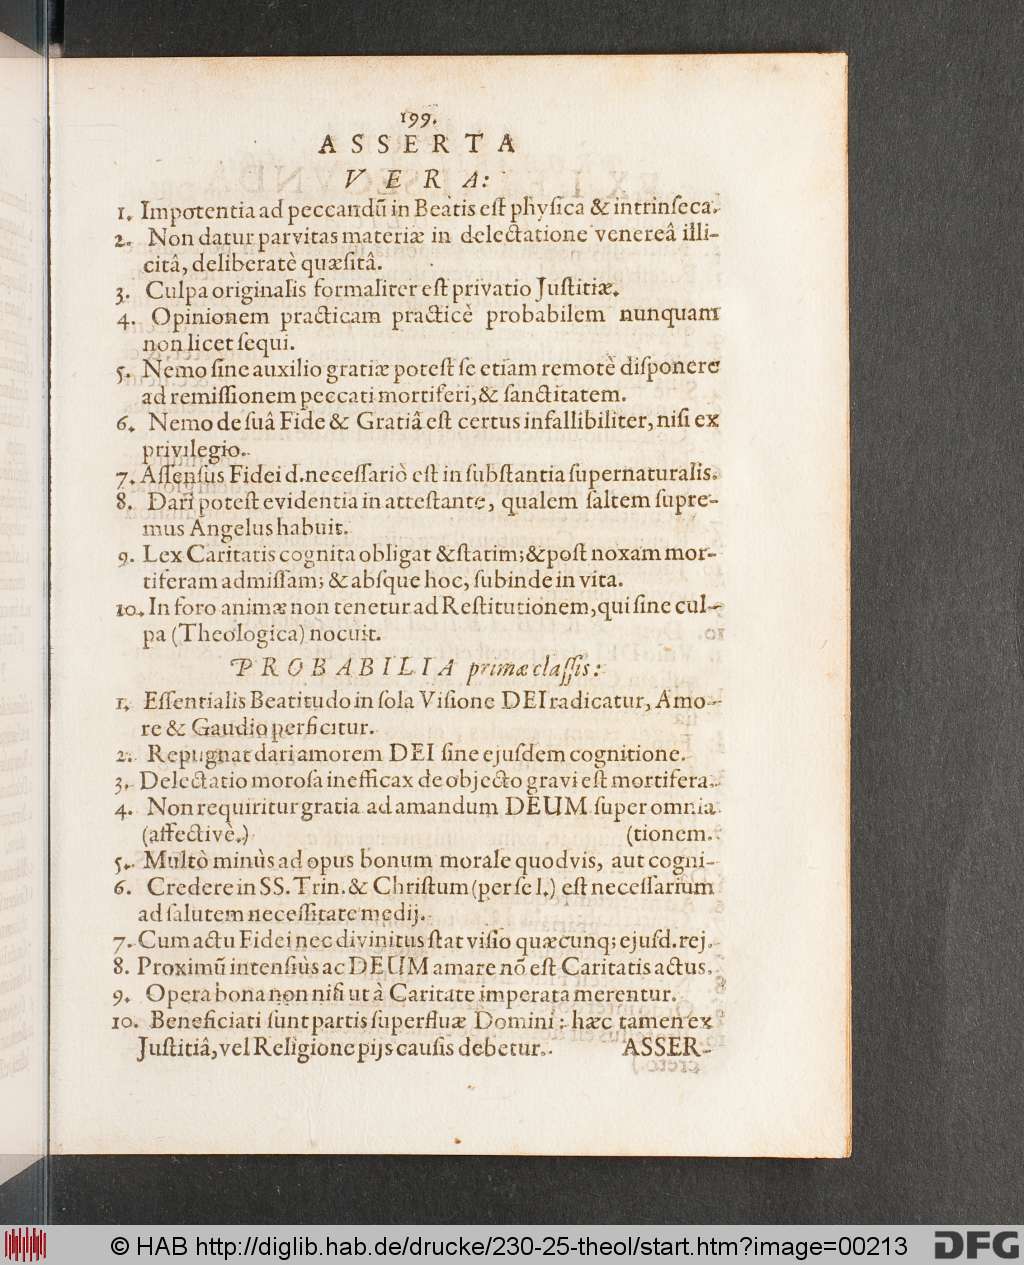 199.
ASSERTA
VERA:
1. Impotentia ad peccandũ in Beatis eſt phyſica & intrinſeca.
2. Non datur parvitas materiæ in delectatione venereâ illi-
citâ, deliberatè quæſitâ.
3. Culpa originalis formaliter eſt privatio Juſtitiæ.
4. Opinionem practicam practicè probabilem nunquam
non licet ſequi.
5. Nemo ſine auxilio gratiæ poteſt ſe etiam remotè diſponere
ad remiſſionem peccati mortiferi, & ſanctitatem.
6. Nemo de ſuâ Fide & Gratiâ eſt certus infallibiliter, niſi ex
privilegio.
7. Aſſenſus Fidei d. neceſſariò eſt in ſubſtantia ſupernaturalis.
8. Dari poteſt evidentia in atteſtante, qualem ſaltem ſupre-
mus Angelus habuit.
9. Lex Caritatis cognita obligat & ſtatim; & poſt noxam mor-
tiferam admiſſam; & abſque hoc, ſubinde in vita.
10. In foro animæ non tenetur ad Reſtitutionem, qui ſine cul-
pa (Theologica) nocuit.
PROBABILIA primæ claſſis:
1. Eſſentialis Beatitudo in ſola Viſione DEI radicatur, Amo-
re & Gaudio perficitur.
2. Repugnat dari amorem DEI ſine ejuſdem cognitione.
3. Delectatio moroſa inefficax de objecto gravi eſt mortifera.
4. Non requiritur gratia ad amandum DEUM ſuper omnia
(affectivè.) (tionem.
5. Multò minùs ad opus bonum morale quodvis, aut cogni-
6. Credere in SS. Trin. & Chriſtum (per ſe l.) eſt neceſſarium
ad ſalutem neceſſitate medij.
7. Cum actu Fidei nec divinitus ſtat viſio quæcunq; ejuſd. rej.
8. Proximũ intenſiùs ac DEUM amare nõ eſt Caritatis actus.
9. Opera bona non niſi ut à Caritate imperata merentur.
10. Beneficiati ſunt partis ſuperfluæ Domini: hæc tamen ex
Juſtitiâ, vel Religione pijs cauſis debetur. ASSER-
© HAB http://diglib.hab.de/drucke/230-25-theol/start.htm?image=00213
DFG